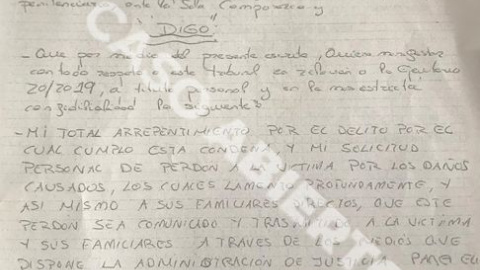 penitenciario, ante la Sala Comparezco y
"DIGO"
- Que por medio del presente escrito, Quiero manifestar
con todo respeto a este Tribunal en relación a la Ejecutoria
20/2019, a título personal y en la más estricta
confidencialidad lo siguiente:
- MI TOTAL ARREPENTIMIENTO POR EL DELITO POR EL
CUAL CUMPLO ESTA CONDENA Y MI SOLICITUD
PERSONAL DE PERDÓN A LA VICTIMA POR LOS DAÑOS
CAUSADOS, LOS CUALES LAMENTO PROFUNDAMENTE, Y
ASI MISMO A SUS FAMILIARES DIRECTOS, QUE ESTE
PERDÓN SEA COMUNICADO Y TRASMITIDO A LA VÍCTIMA
Y SUS FAMILIARES A TRAVES DE LOS MEDIOS QUE
DISPONE LA ADMINISTRACIÓN DE JUSTICIA PARA EL
CASO ABIERTO